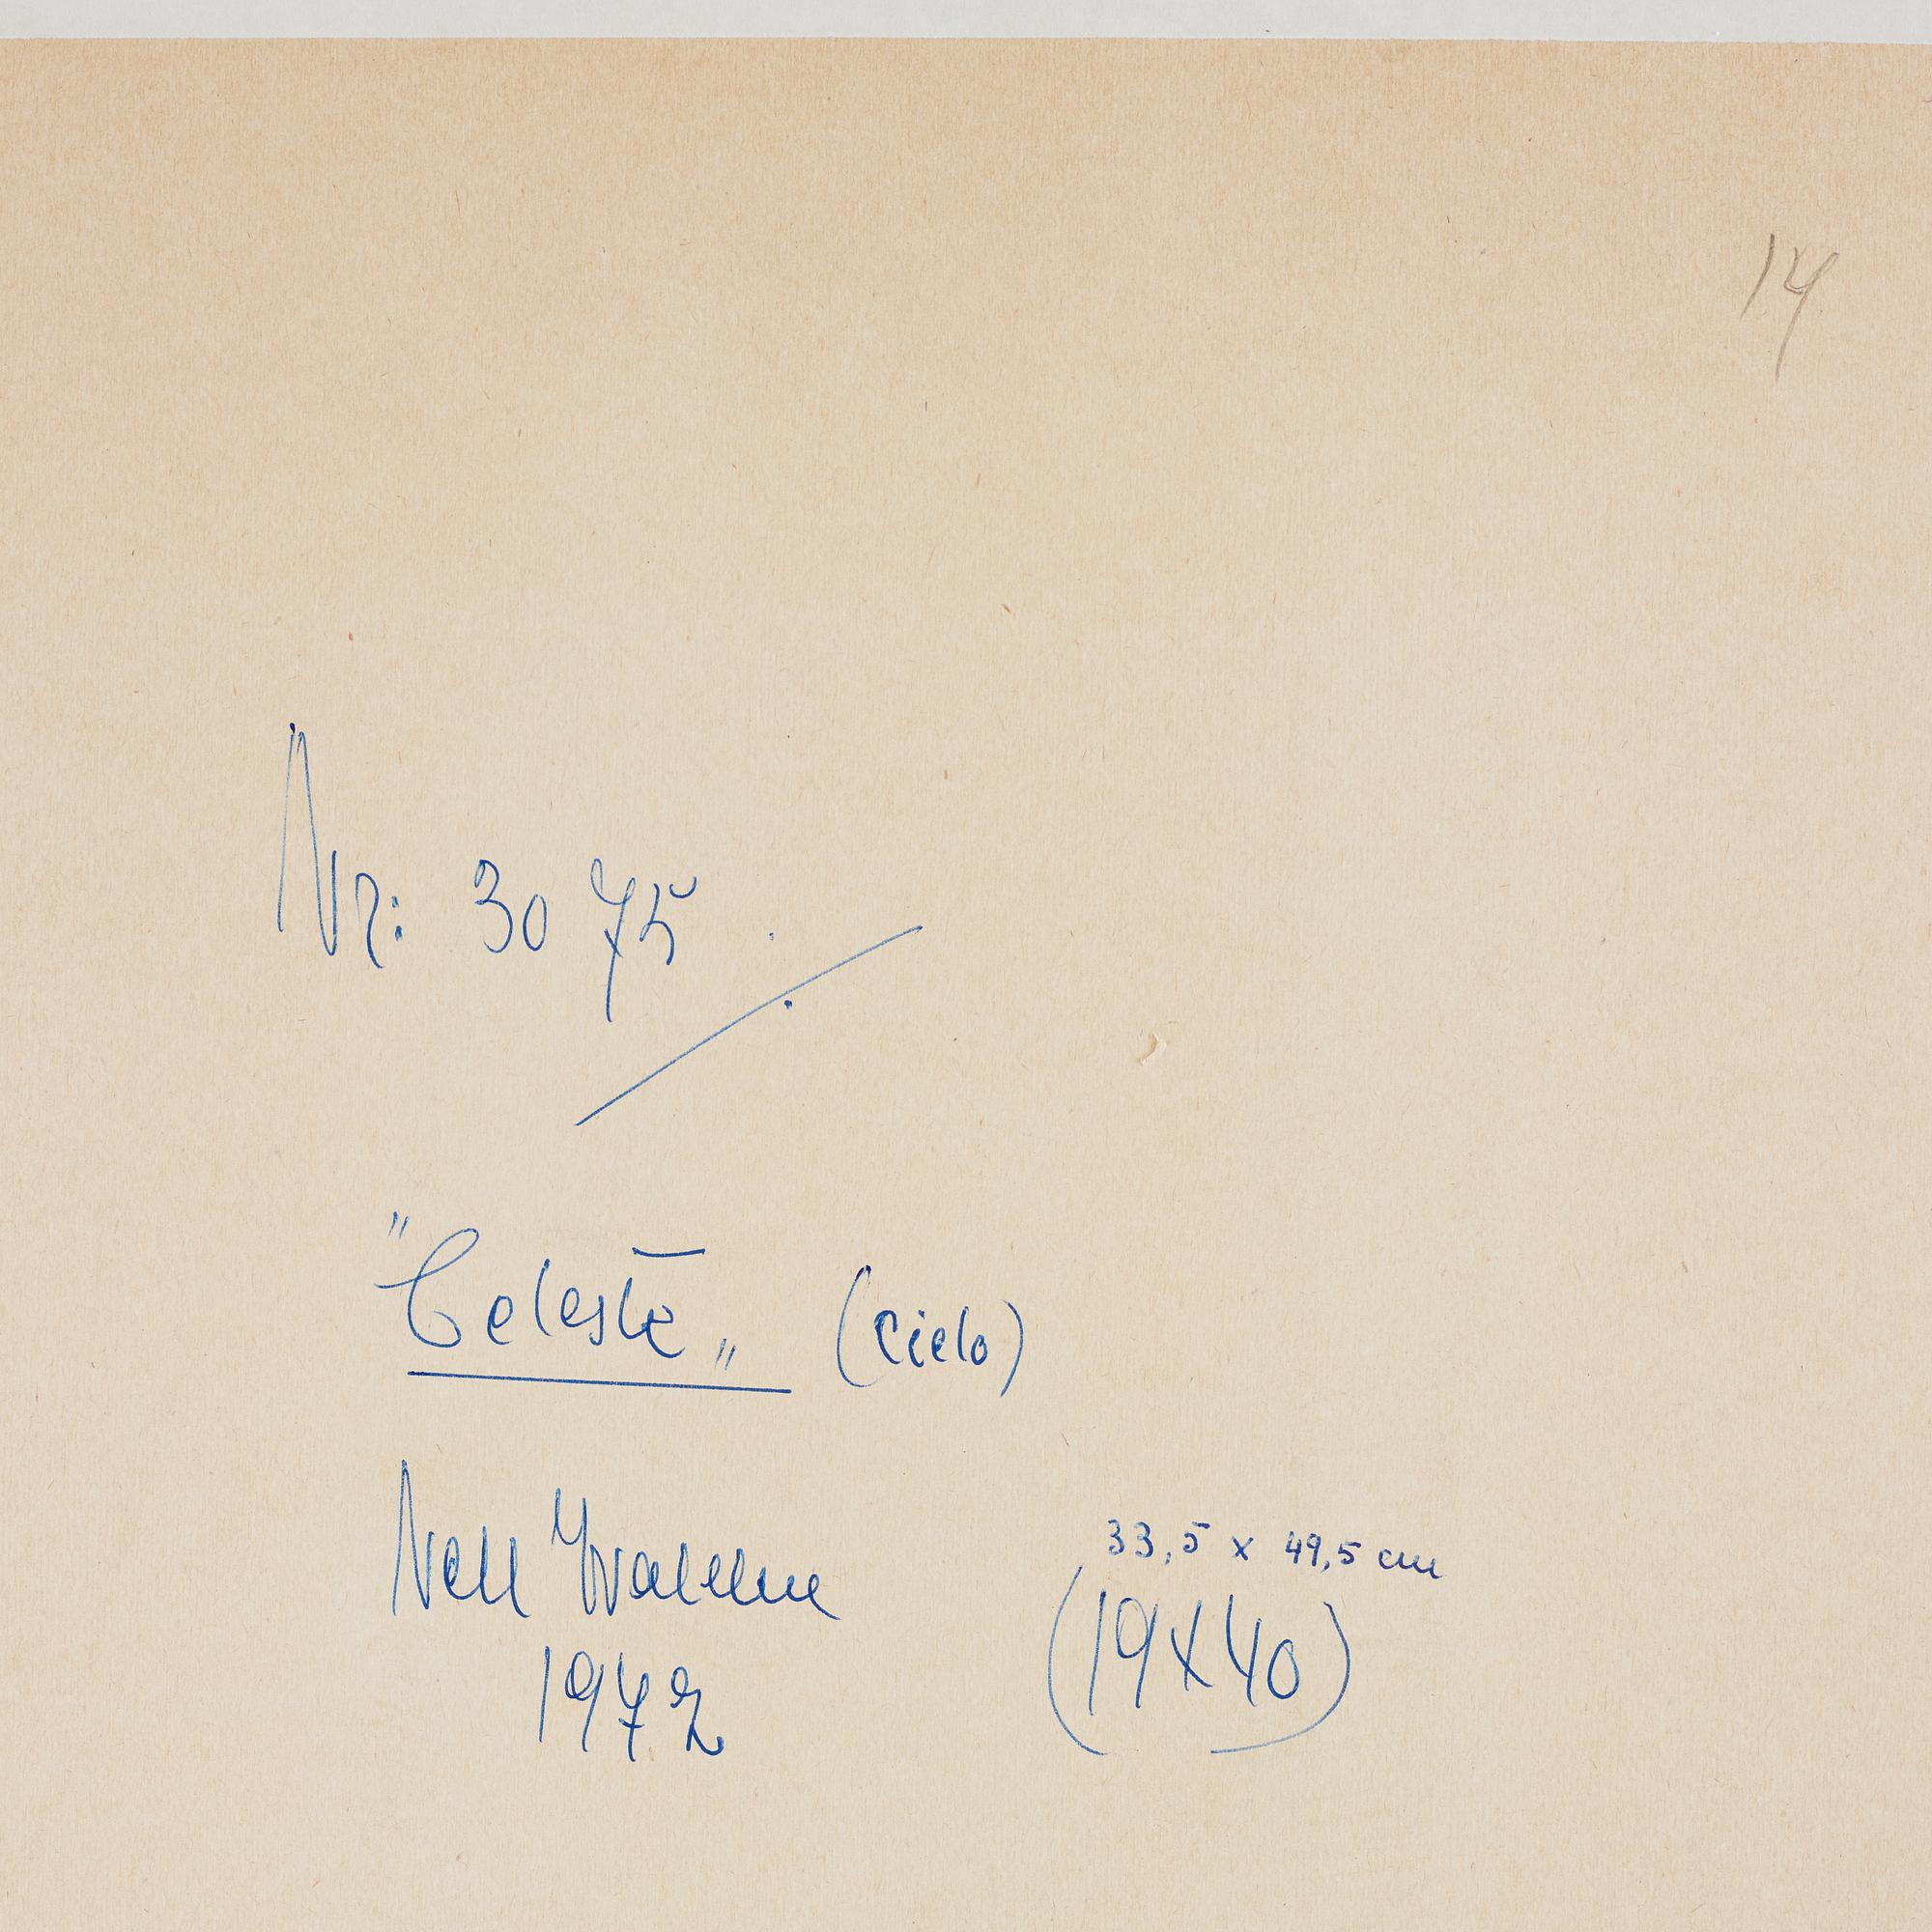 14
Nr: 3075
"Celeste" (cielo)
Nell Walden
33,5 x 49,5 cm
1972
(19x40)